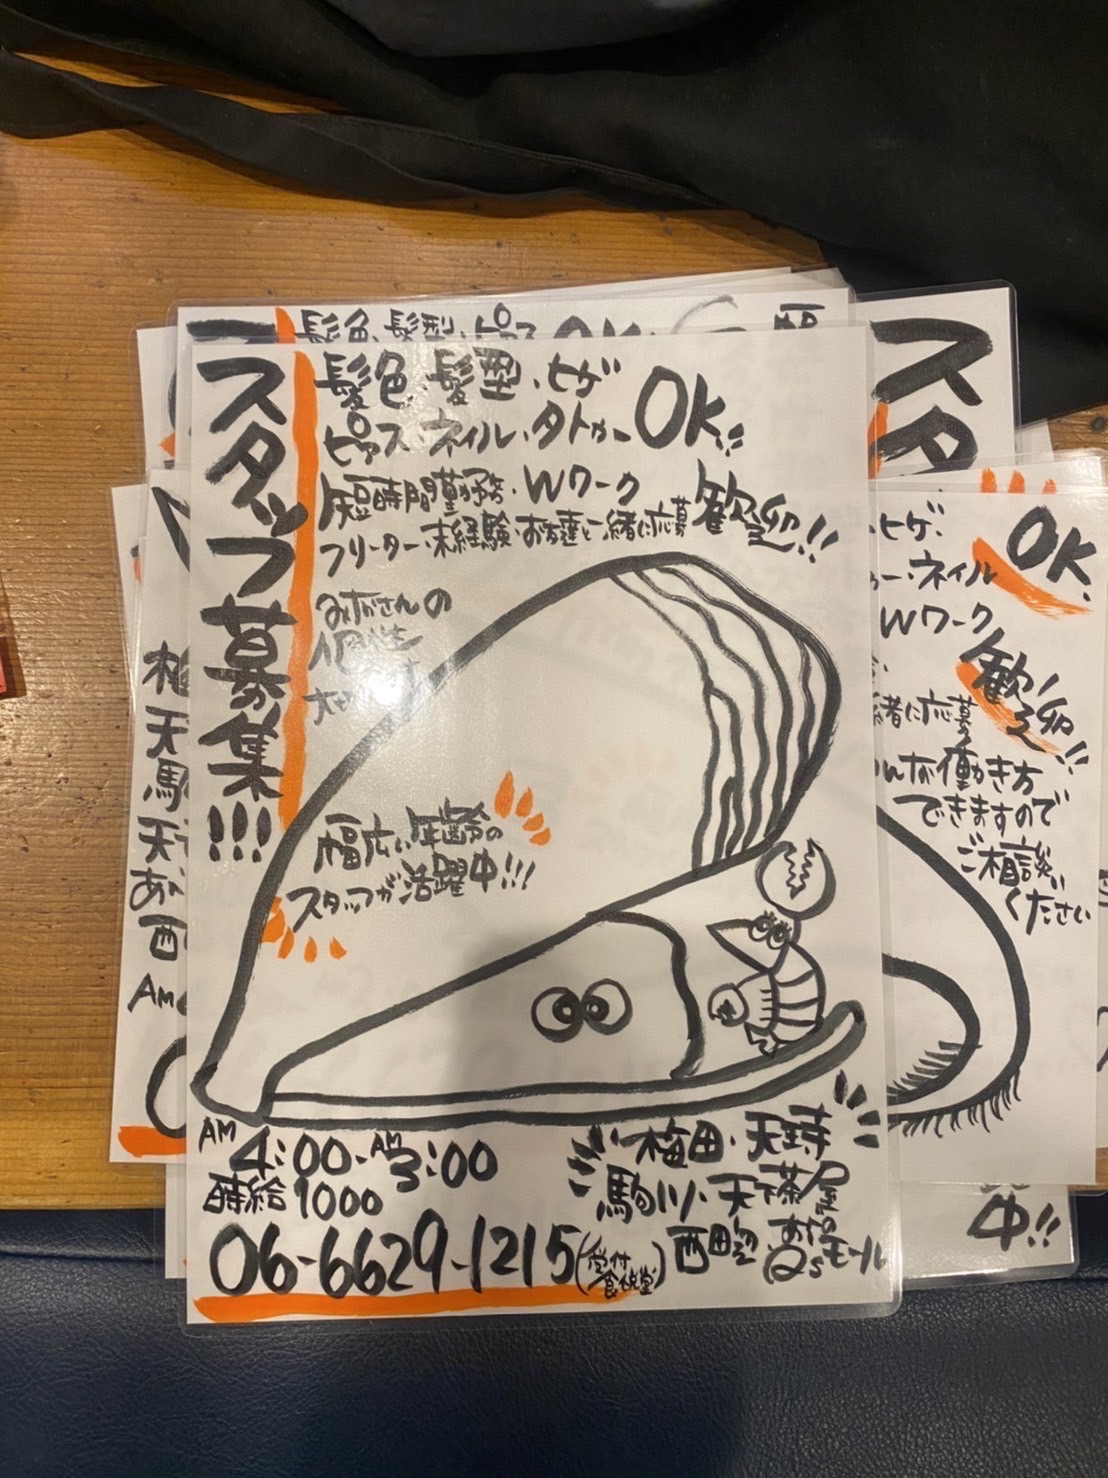 スタッフ募集!!!
髪色、髪型、ヒゲ
ピアス・ネイル・タトゥー OK!!
短時間勤務・Wワーク
フリーター・未経験・お友達と一緒に応募 歓迎!!
みなさんの
個性
大
幅広い年齢の
スタッフが活躍中!!!
AM4:00-AM3:00
時給1000
06-6629-1215
梅田・天王寺
駒川・天下茶屋
西田辺・あべのQ'sモール
髪色、髪型、ピアス OK
スタ
梅
天
駒
天
あ
西
AM
OK.
ヒゲ、
ー・ネイル
Wワーク
歓迎!!
緒に応募
んな働き方
できますので
ご相談
ください
中!!